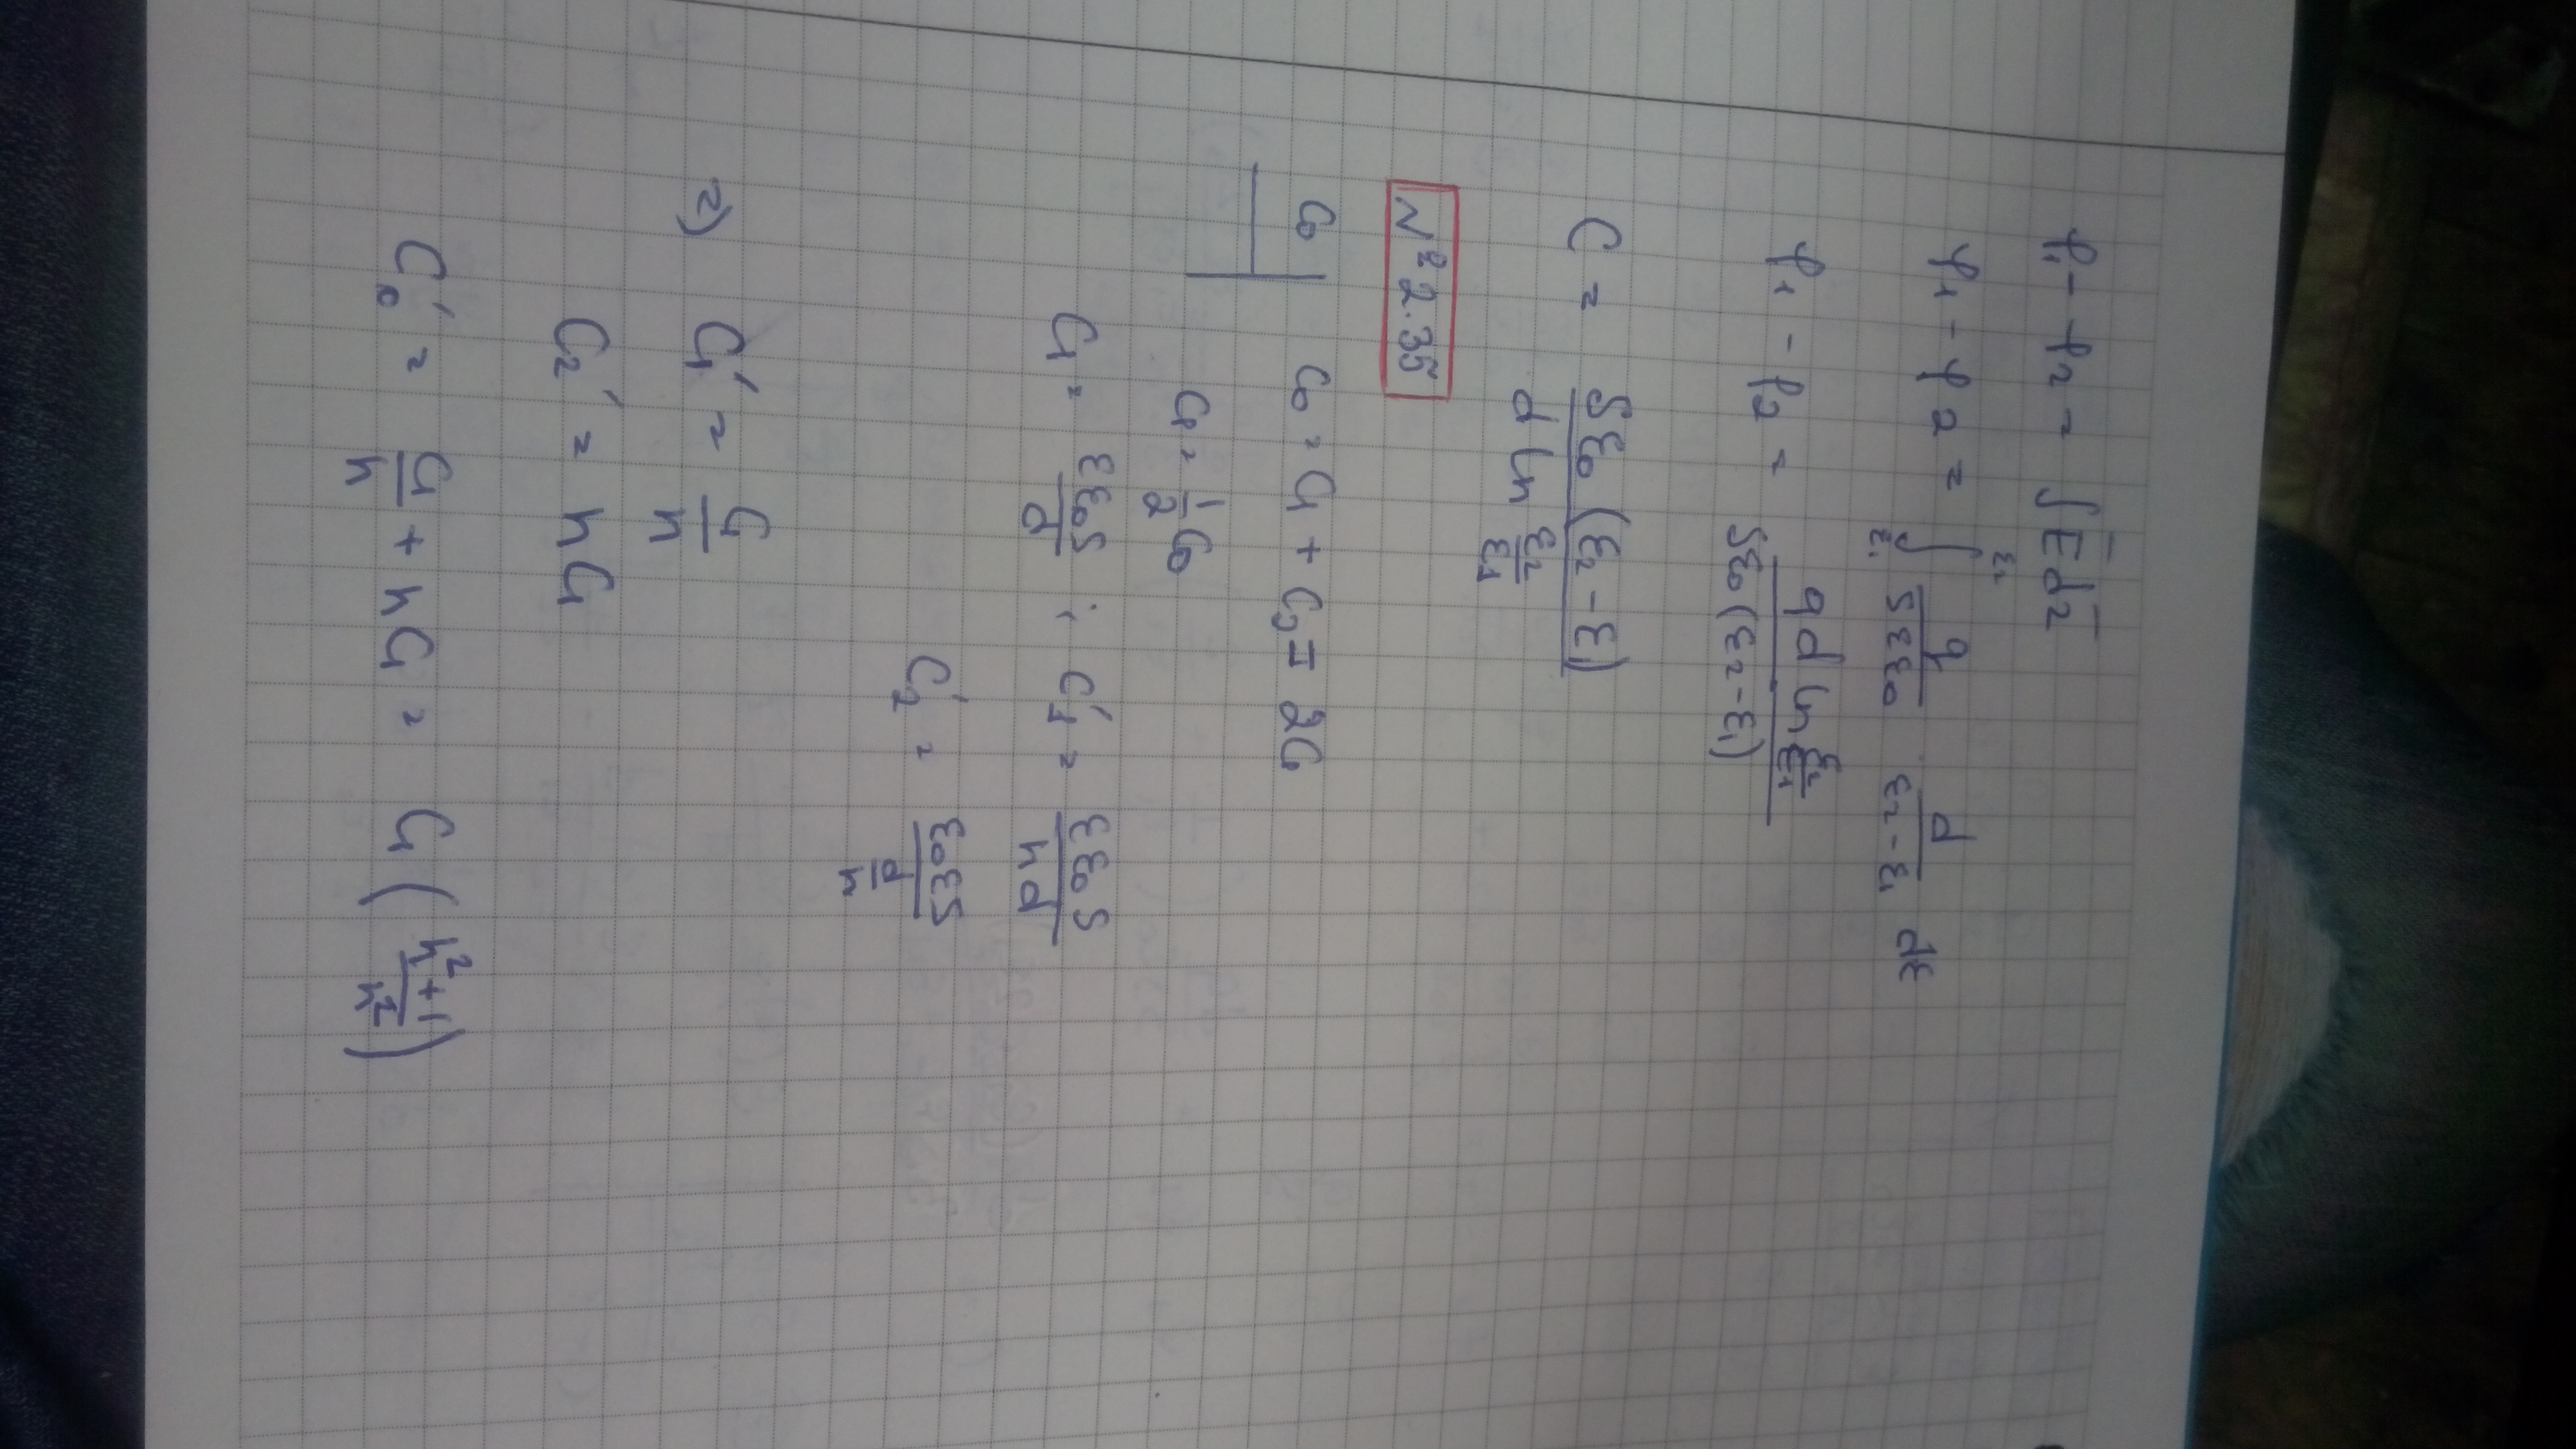 φ₁ - φ₂ = ∫ E̅ dz̅
φ₁ - φ₂ = ∫_{ε₁}^{ε₂} q/(Sεε₀) · d/(ε₂-ε₁) dε
φ₁ - φ₂ = (q d ln ε₂/ε₁)/(Sε₀(ε₂-ε₁))
C = (Sε₀(ε₂-ε₁))/(d ln ε₂/ε₁)
№ 2.35
C₀ C₀ = C₁ + C₂ = 2C₁
C₁ = 1/2 C₀
C₁ = εε₀S/d ; C₁' = εε₀S/(nd)
C₂' = εε₀S/(d/n)
2) C₁' = C₁/n
C₂' = nC₁
C₀' = C₁/n + nC₁ = C₁((n²+1)/n²)